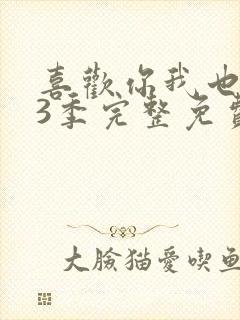 喜歡你我也
3季完整免費
大臉猫愛喫魚